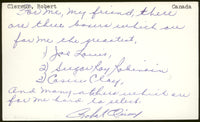 Cleroux, Robert Canada
For me, my friend, there
are three boxers which are
for me the greatest,
1) Joe Louis,
2) Sugar Ray Robinson
3) Casius Clay,
And many others which are
for me hard to select.
Robert Cleroux